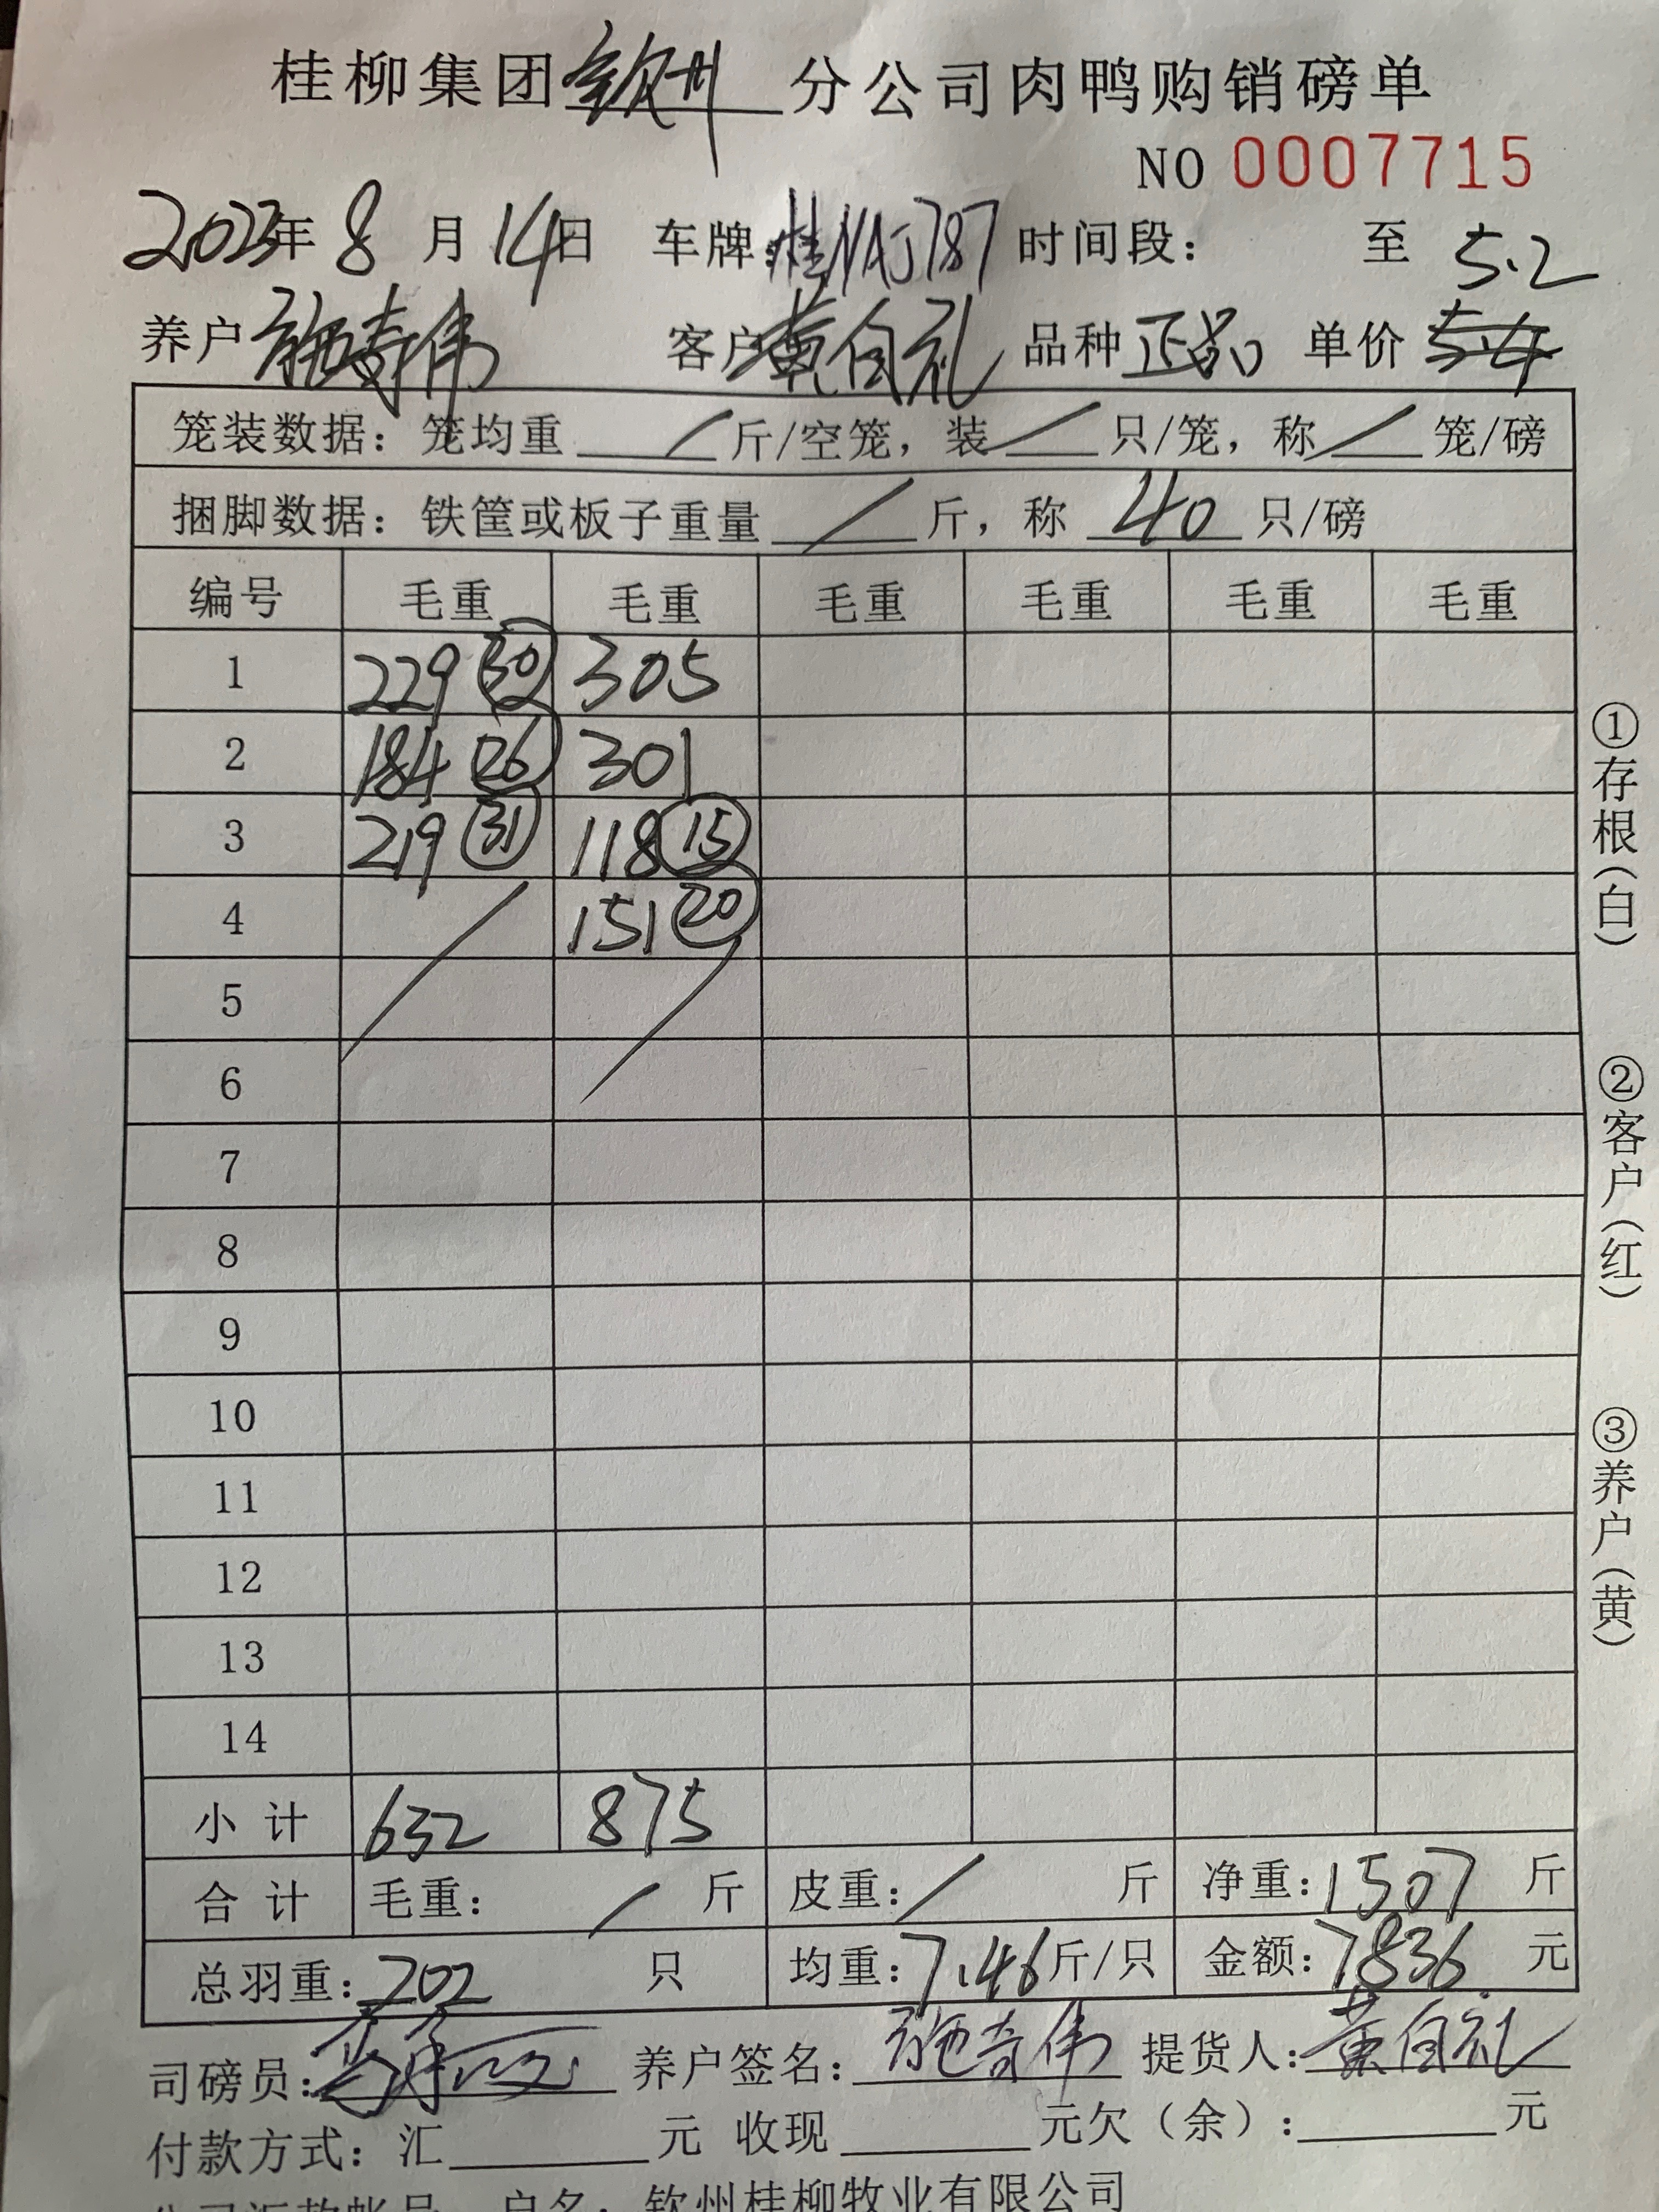 桂柳集团钦州分公司肉鸭购销磅单
NO 0007715
2023年 8 月 14日 车牌:桂NAJ787 时间段: 至 5.2
养户 施奇伟 客户 黄自礼 品种 正品 单价 5.4
笼装数据:笼均重 / 斤/空笼,装 / 只/笼,称 / 笼/磅
捆脚数据:铁筐或板子重量 / 斤,称 40 只/磅
编号 毛重 毛重 毛重 毛重 毛重 毛重
1 229 30 305
2 184 26 301
3 219 31 118 15
4 151 20
5
6
7
8
9
10
11
12
13
14
小计 632 875
合计 毛重: / 斤 皮重: / 斤 净重:1507 斤
总羽重:202 只 均重:7.46斤/只 金额:7836 元
司磅员: 养户签名:施奇伟 提货人:黄自礼
付款方式:汇 元 收现 元欠(余): 元
户名:钦州桂柳牧业有限公司
①存根(白)
②客户(红)
③养户(黄)